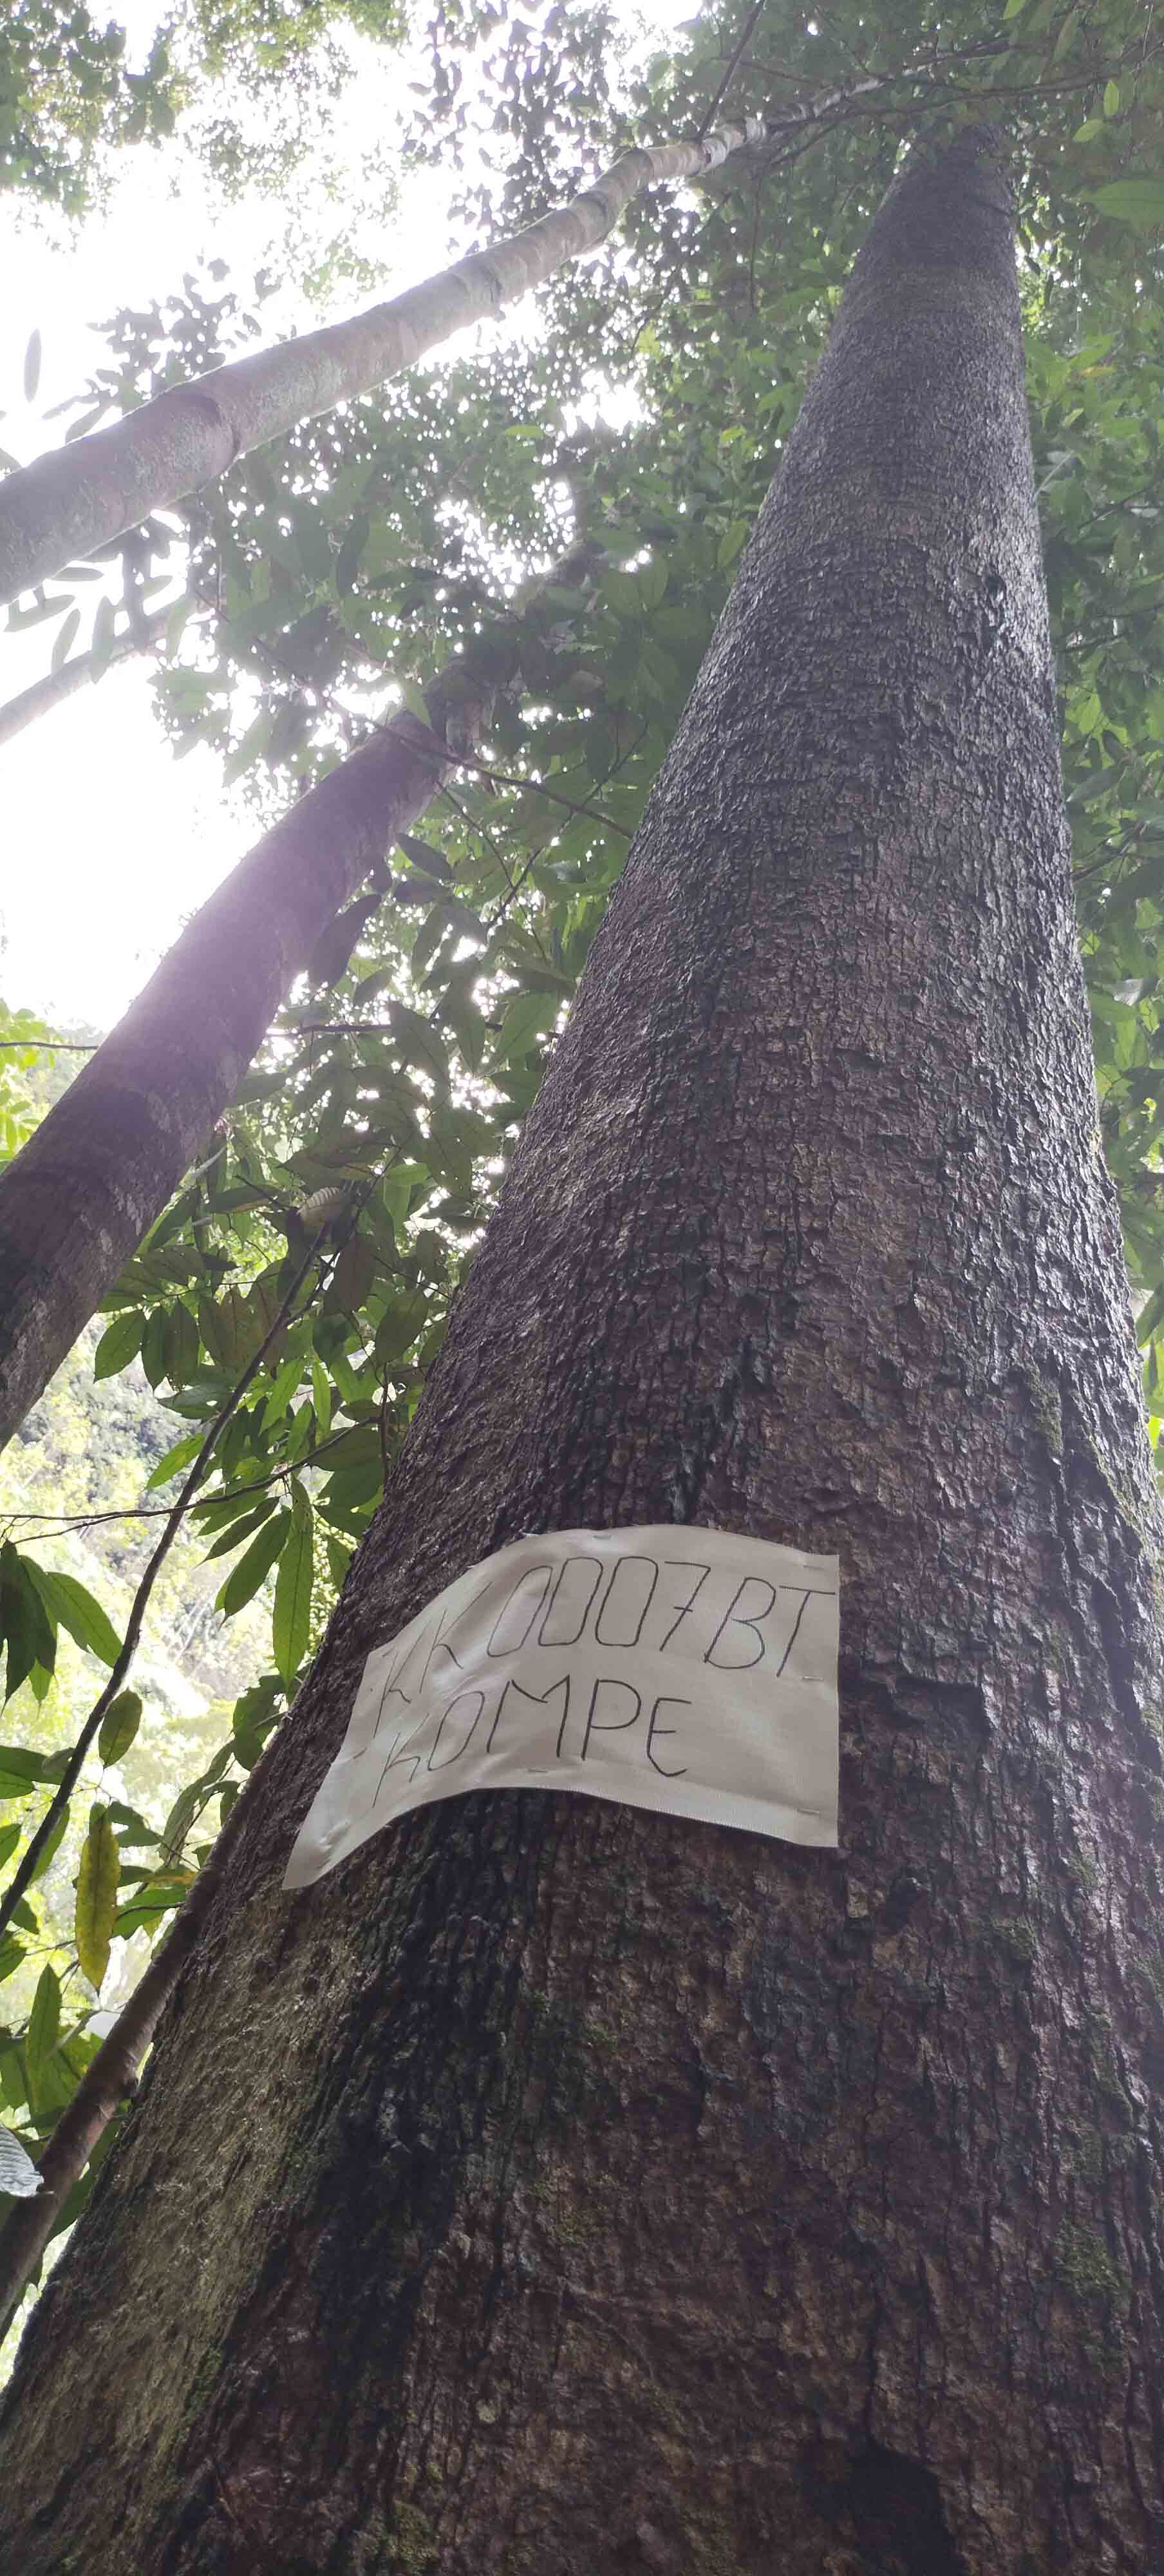 KK0007BT
KOMPE